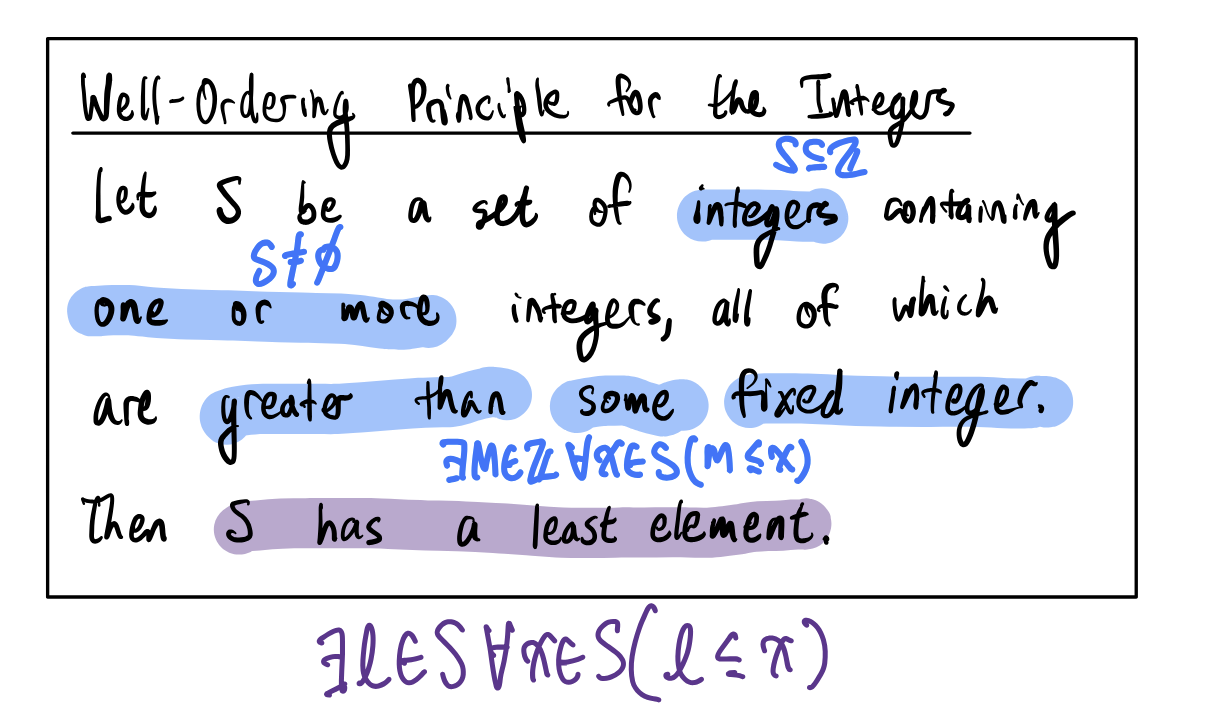 Well-Ordering Principle for the Integers
S⊆ℤ
Let S be a set of integers containing
S≠∅
one or more integers, all of which
are greater than some fixed integer.
∃M∈ℤ ∀x∈S(M≤x)
Then S has a least element.
∃l∈S ∀x∈S(l≤x)